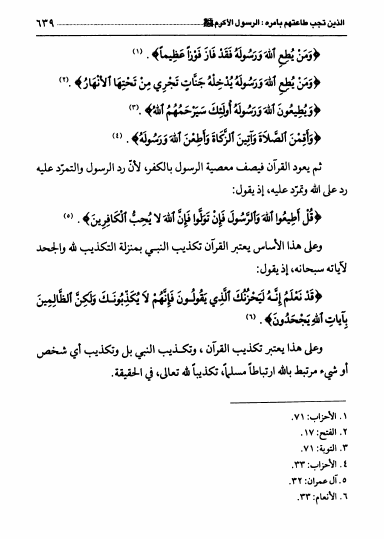 الذين تجب طاعتهم بأمره : الرسول الأكرم ﷺ ٦٣٩
﴿وَمَنْ يُطِعِ اللهَ وَرَسُولَهُ فَقَدْ فَازَ فَوْزاً عَظِيماً﴾ . (١)
﴿وَمَنْ يُطِعِ اللهَ وَرَسُولَهُ يُدْخِلْهُ جَنَّاتٍ تَجْرِي مِنْ تَحْتِهَا الأَنْهَارُ﴾ . (٢)
﴿وَيُطِيعُونَ اللهَ وَرَسُولَهُ أُولَئِكَ سَيَرْحَمُهُمُ اللهُ﴾ . (٣)
﴿وَأَقِمْنَ الصَّلَاةَ وَآتِينَ الزَّكَاةَ وَأَطِعْنَ اللهَ وَرَسُولَهُ﴾ . (٤)
ثم يعود القرآن فيصف معصية الرسول بالكفر، لأنّ رد الرسول والتمرّد عليه
رد على الله وتمرّد عليه، إذ يقول:
﴿قُلْ أَطِيعُوا اللهَ وَالرَّسُولَ فَإِنْ تَوَلَّوْا فَإِنَّ اللهَ لا يُحِبُّ الْكَافِرِينَ﴾ . (٥)
وعلى هذا الأساس يعتبر القرآن تكذيب النبي بمنزلة التكذيب لله والجحد
لآياته سبحانه، إذ يقول:
﴿قَدْ نَعْلَمُ إِنَّهُ لَيَحْزُنُكَ الَّذِي يَقُولُونَ فَإِنَّهُمْ لاَ يُكَذِّبُونَكَ وَلَكِنَّ الظَّالِمِينَ
بِآيَاتِ اللهِ يَجْحَدُونَ﴾ . (٦)
وعلى هذا يعتبر تكذيب القرآن ، وتكذيب النبي بل وتكذيب أي شخص
أو شيء مرتبط بالله ارتباطاً مسلماً، تكذيباً لله تعالى، في الحقيقة.
١. الأحزاب: ٧١.
٢. الفتح: ١٧.
٣. التوبة: ٧١.
٤. الأحزاب: ٣٣.
٥. آل عمران: ٣٢.
٦. الأنعام: ٣٣.